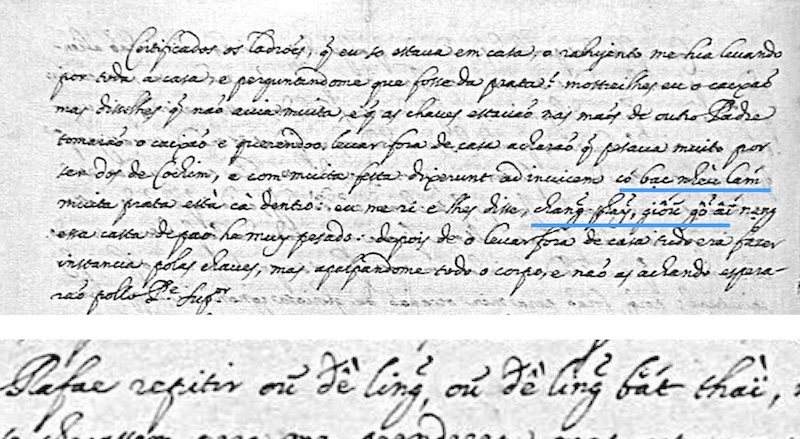 Certificados os ladrões, q̃ eu so estava em casa, o rabujento me hia levando
por toda a casa, e perguntandome que fosse da prata: mostreilhes eu o caixaõ
mas disselhes q̃ não avia muita, e q̃ as chaves estavão nas mãos de outro Padre
tomarão o caixão e querendoo levar fora de casa acharão q̃ pesava muito por
ser dos de Cochim, e com muita festa dixerunt ad invicem có bạc nhều lám
muita prata està cà dentro: eu me ri e lhes disse, chang̃ phaỹ, gioũ gõ ai nang
essa casta de pao hà muy pesado: depois de o levar fora de casa tudo era fazer
instancia polas chaves, mas apalpandome todo o corpo, e não as achando espera-
rão pollo P.ᵉ Sup.ᵒʳ
repitir oũ đề ling̃, oũ đề ling̃ bát thaĩ,